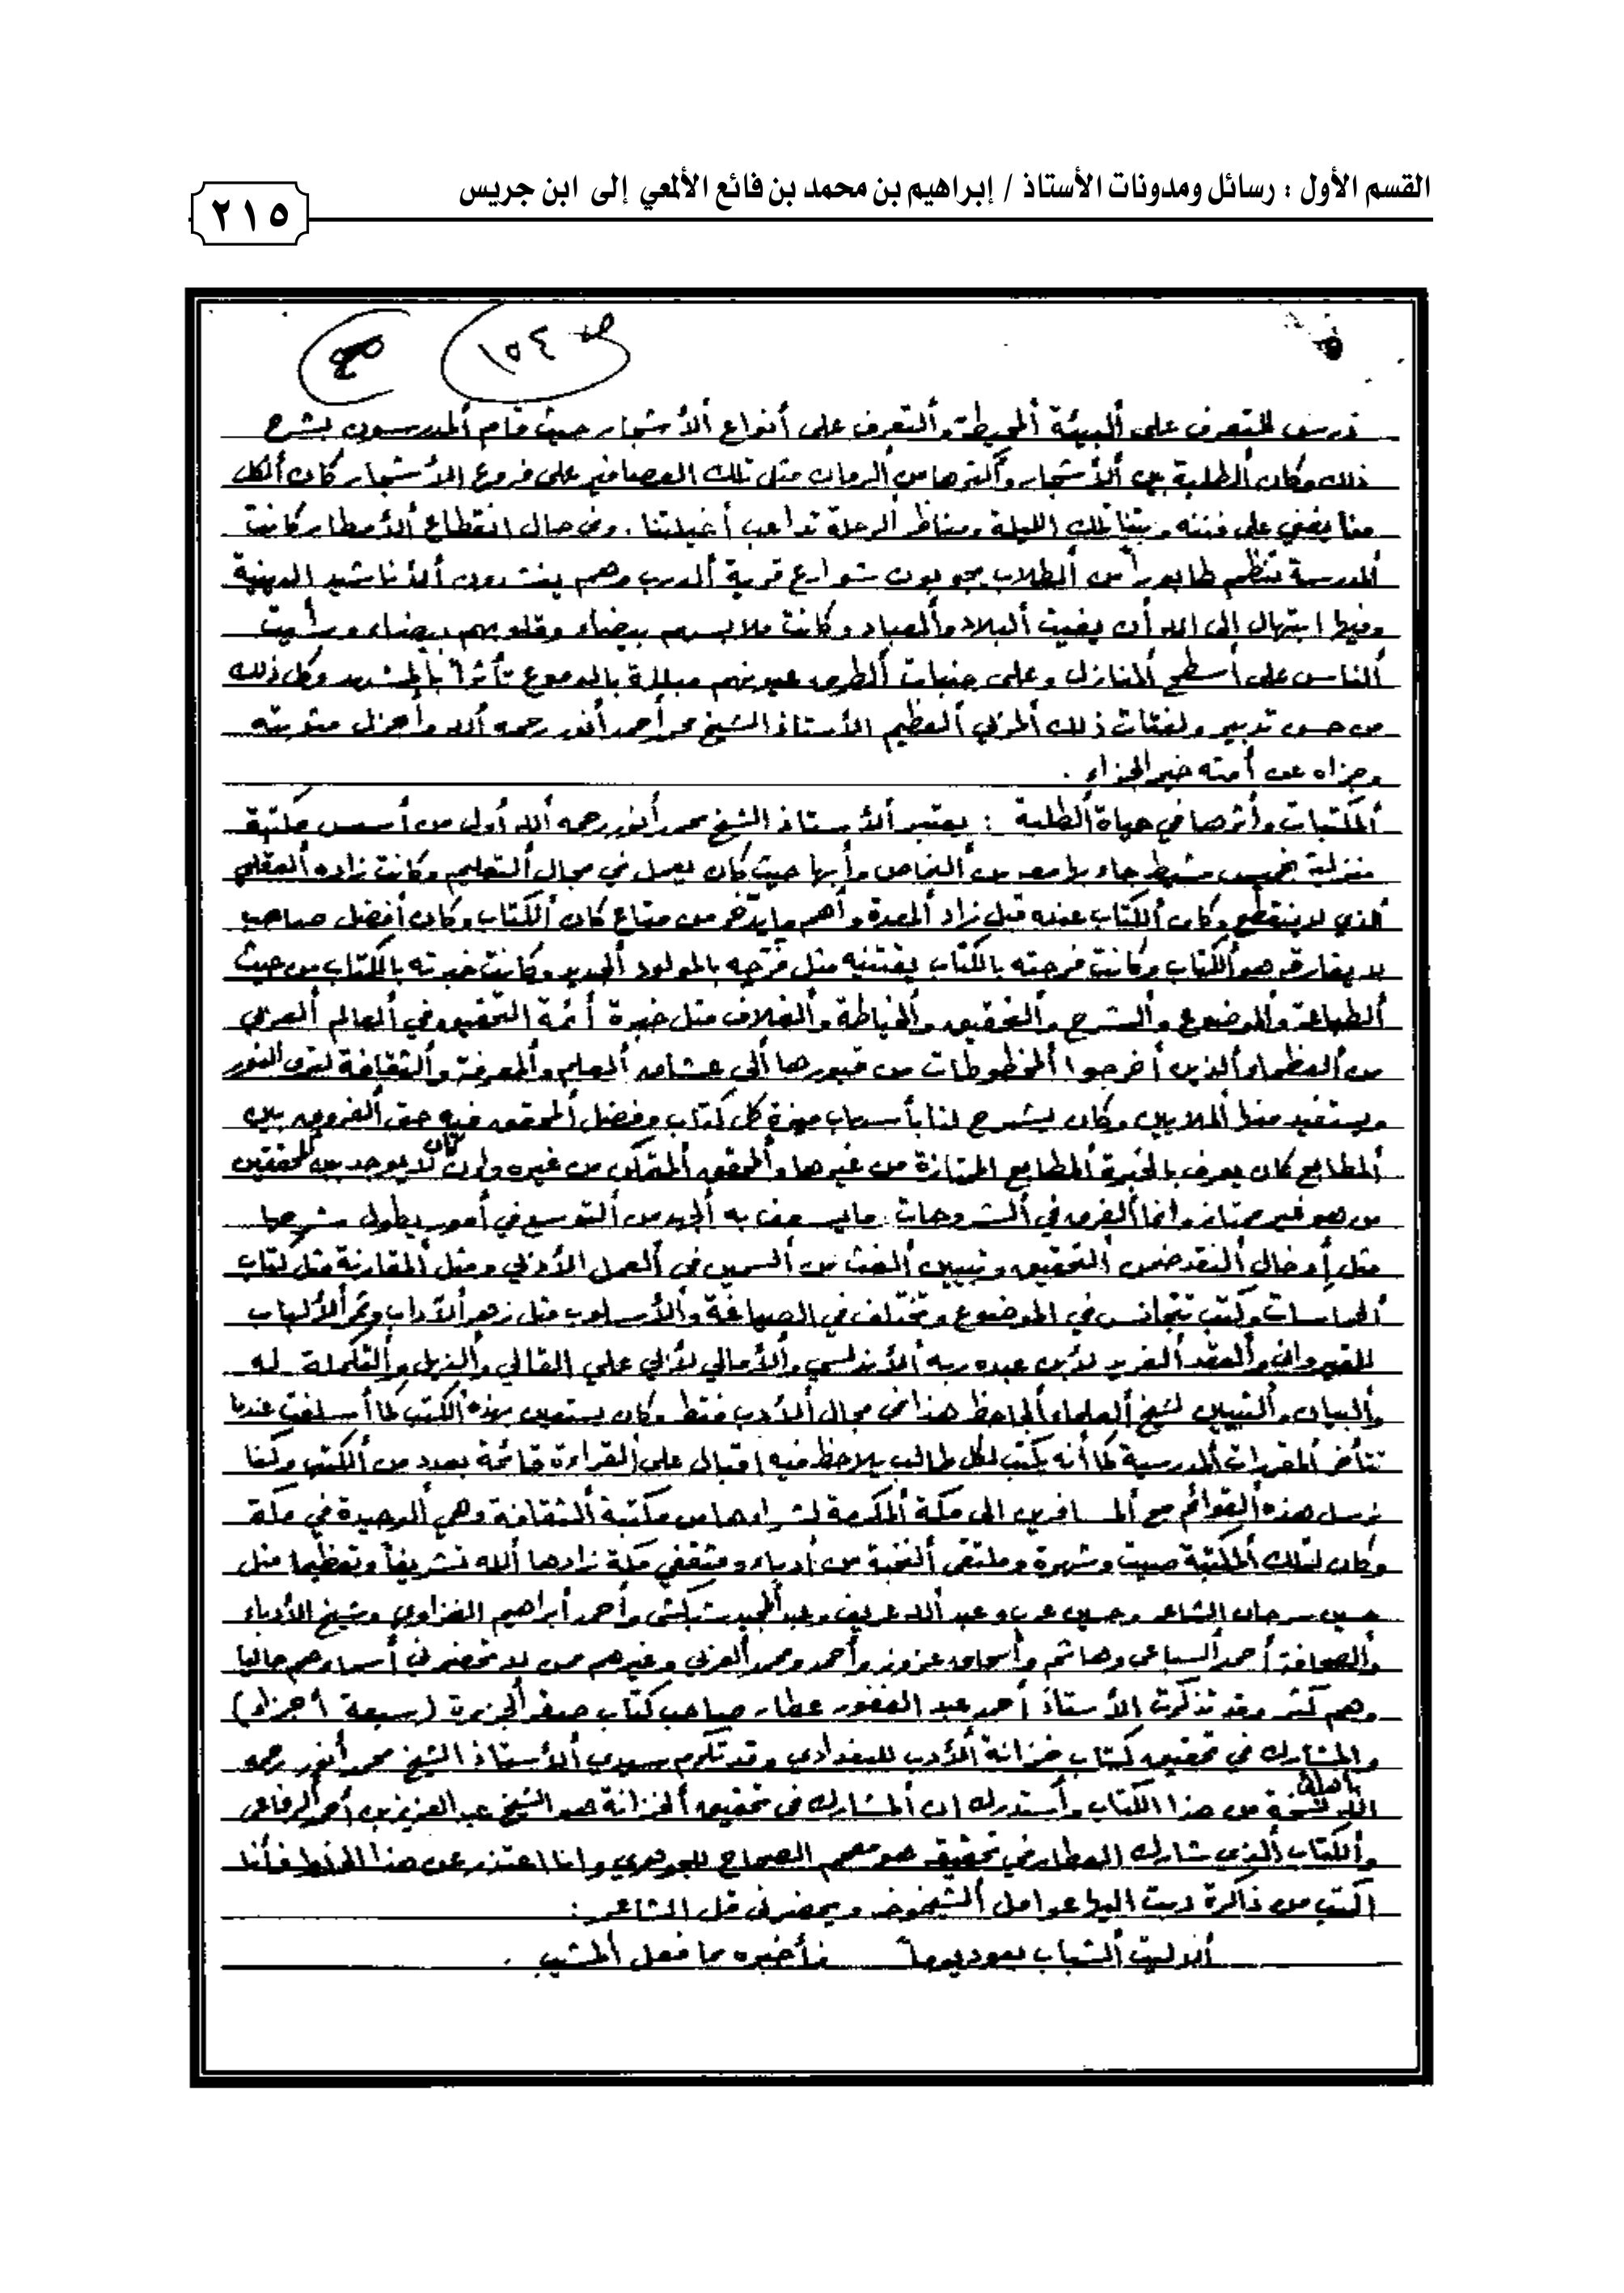 القسم الأول : رسائل ومدونات الأستاذ / إبراهيم بن محمد بن فائع الألمعي إلى ابن جريس
٢١٥
صـ ١٥٤
ندرس للتعرف على ألبيئة ألمحيطة وألتعرف على أنواع ألأشجار حيث قام ألمدرسون بشرح
ذلك وكان ألطلبة بين ألأشجار وأكثرها من ألرمان مثل تلك العصافير على فروع الأشجار كان ألكل
منا يغني على فننه وبتنا تلك الليلة ومناظر ألرحلة تداعب أخيلتنا . وفي حال انقطاع ألأمطار كانت
ألمدرسة تنظم طابوراً من ألطلاب يجوبون شوارع قرية ألدرب وهم ينشدون ألأناشيد الدينية
وفيها ابتهال إلى الله أن يغيث ألبلاد وألعباد وكانت ملابسهم بيضاء وقلوبهم بيضاء ورأيت
ألناس على أسطح ألمنازل وعلى جنبات ألطرق عيونهم مبللة بالدموع تأثراً بألمشهد وكل ذلك
من حسن تدبير ولفتات ذلك ألمربي ألعظيم الأستاذ الشيخ محمد أحمد أنور رحمه ألله وأجزل مثوبته
وجزاه عن أمته خير الجزاء .
ألمكتبات وأثرها في حياة ألطلبة : يعتبر ألأستاذ الشيخ محمد أنور رحمه ألله أول من أسس مكتبة
منزلية بخميس مشيط جاء بها معه من ألنماص وأبها حيث كان يعمل في مجال ألتعليم وكانت زاده ألعقلي
ألذي لا ينقطع وكان ألكتاب عنده قبل زاد ألمعدة وأهم ما يدخر من متاع كان ألكتاب وكان أفضل صاحب
لا يفارقه هو ألكتاب وكانت فرحته بالكتاب يقتنيه مثل فرحه بالمولود ألجديد وكانت خبرته بالكتاب من حيث
ألطباعة وألموضوع وألشرح وألتحقيق وألخياطة وألغلاف مثل خبرة أئمة التحقيق في ألعالم ألعربي
من ألعظماء ألذين أخرجوا ألمخطوطات من قبورها ألى عشاق ألعلم وألمعرفة وألثقافة لترى النور
ويستفيد منها ألملايين وكان يشرح لنا بأسهاب ميزة كل كتاب وفضل ألمحقق فيه حتى ألفروق بين
ألمطابع كان يعرف بالخبرة ألمطابع الممتازة من غيرها وألمحقق ألمتمكن من غيره وإن كان لا يوجد بين ألمحققين
من هو غير ممتاز وإنما ألفرق في ألشروحات ما يسعف به ألجهد من ألتوسع في أمور يطول شرحها
مثل إدخال ألنقد ضمن ألتحقيق وتبيين ألغث من ألسمين في ألعمل الأدبي ومثل ألمقارنة مثل كتاب
ألحماسات وكتب تتجانس في الموضوع وتختلف في الصياغة وألأسلوب مثل زهر ألآداب وثمر ألألباب
للقيرواني وألعقد ألفريد لأبن عبد ربه ألأندلسي وألأمالي لأبي علي القالي وألذيل وألتكملة له
وألبيان وألتبيين لشيخ ألعلماء ألجاحظ هذا في مجال ألأدب فقط وكان يستعين بهذه ألكتب كما أسلفت عندما
تتأخر ألمقررات ألمدرسية كما أنه يكتب لكل طالب يلاحظ فيه إقبال على ألقراءة قائمة بعدد من ألكتب وكنا
نرسل هذه ألقوائم مع ألمسافرين الى مكة ألمكرمة لشراءها من مكتبة ألثقافة وهي ألوحيدة في مكة
وكان لتلك ألمكتبة صيت وشهرة وملتقى ألنخبة من أدباء ومثقفي مكة زادها ألله تشريفاً وتعظيما مثل
حسين سرحان الشاعر وحسين عرب وعبد ألله عريف وعبد ألمجيد شبكشي وأحمد أبراهيم الغزاوي وشيخ الأدباء
وألصحافة أحمد ألسباعي وهاشم وأسحاق عزوز وأحمد ومحمد ألعربي وغيرهم ممن لا تحضرني أسماءهم حاليا
وهم كثر وقد تذكرت الأستاذ أحمد عبد الغفور عطار صاحب كتاب صقر ألجزيرة (سبعة أجزاء)
والمشارك في تحقيق كتاب خزانة ألأدب للبغدادي وقد تكرم سيدي ألأستاذ الشيخ محمد أنور رحمه
الله بأهدائي نسخة من هذا الكتاب وأستدرك ان ألمشارك في تحقيق ألخزانة هو الشيخ عبد العزيز بن أحمد ألرفاعي
وألكتاب ألذي شارك العطار في تحقيقه هو معجم الصحاح للجوهري وانا اعتذر عن هذا الخلط فأنا
اكتب من ذاكرة دبت اليها عوامل ألشيخوخة ويحضرني قول الشاعر :
ألا ليت ألشباب يعود يوماً فأخبره بما فعل ألمشيب .